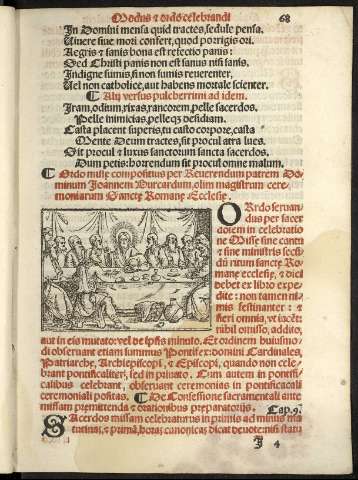 Modus & ordo celebrandi 68
In Domini mensa quid tractes, sedule pensa.
Uivere sive mori confert, quod porrigis ori.
Aegris & sanis bona est refectio panis:
Sed Christi panis non est sanus nisi sanis.
Indigne sumis, si non sumis reverenter,
Uel non catholice, aut habens mortale scienter.
¶ Alij versus pulcherrimi ad idem.
Iram, odium, rixas, rancorem, pelle sacerdos.
Pelle inimicias, pelleq; desidiam.
Casta placent superis, tu casto corpore, casta
Mente Deum tractes, sit procul atra lues.
Sit procul & luxus sanctorum sancta sacerdos.
Dum petis: horrendum sit procul omne malum.
¶ Ordo missę compositus per Reuerendum patrem Do-
minum Joannem Burcardum, olim magistrum cere-
moniarum Sanctę Romanę Ecclesię.
ORdo seruan-
dus per sacer
dotem in celebratio
ne Misse sine cantu
& sine ministris secū
dū ritum sanctę Ro-
manę ecclesię, & dici
debet ex libro expe
dite: non tamen ni-
mis festinanter: &
fieri omnia, vt iacēt:
nihil omisso, addito,
aut in eis mutato: vel de ipsis minuto. Et ordinem huiusmo-
di obseruant etiam summus Pontifex: domini Cardinales,
Patriarchę, Archiepiscopi, & Episcopi, quando non cele-
brant pontificaliter, sed in priuato. Cum autem in pontifi-
calibus celebrant, obseruant ceremonias in pontificali
ceremoniali positas. ¶ De Confessione sacramentali ante
missam premittenda & orationibus preparatorijs. Cap. 9.
SAcerdos missam celebraturus in primis ad minus ma
tutinas, & primā, horas canonicas dicat deuote: nisi statu
I 4